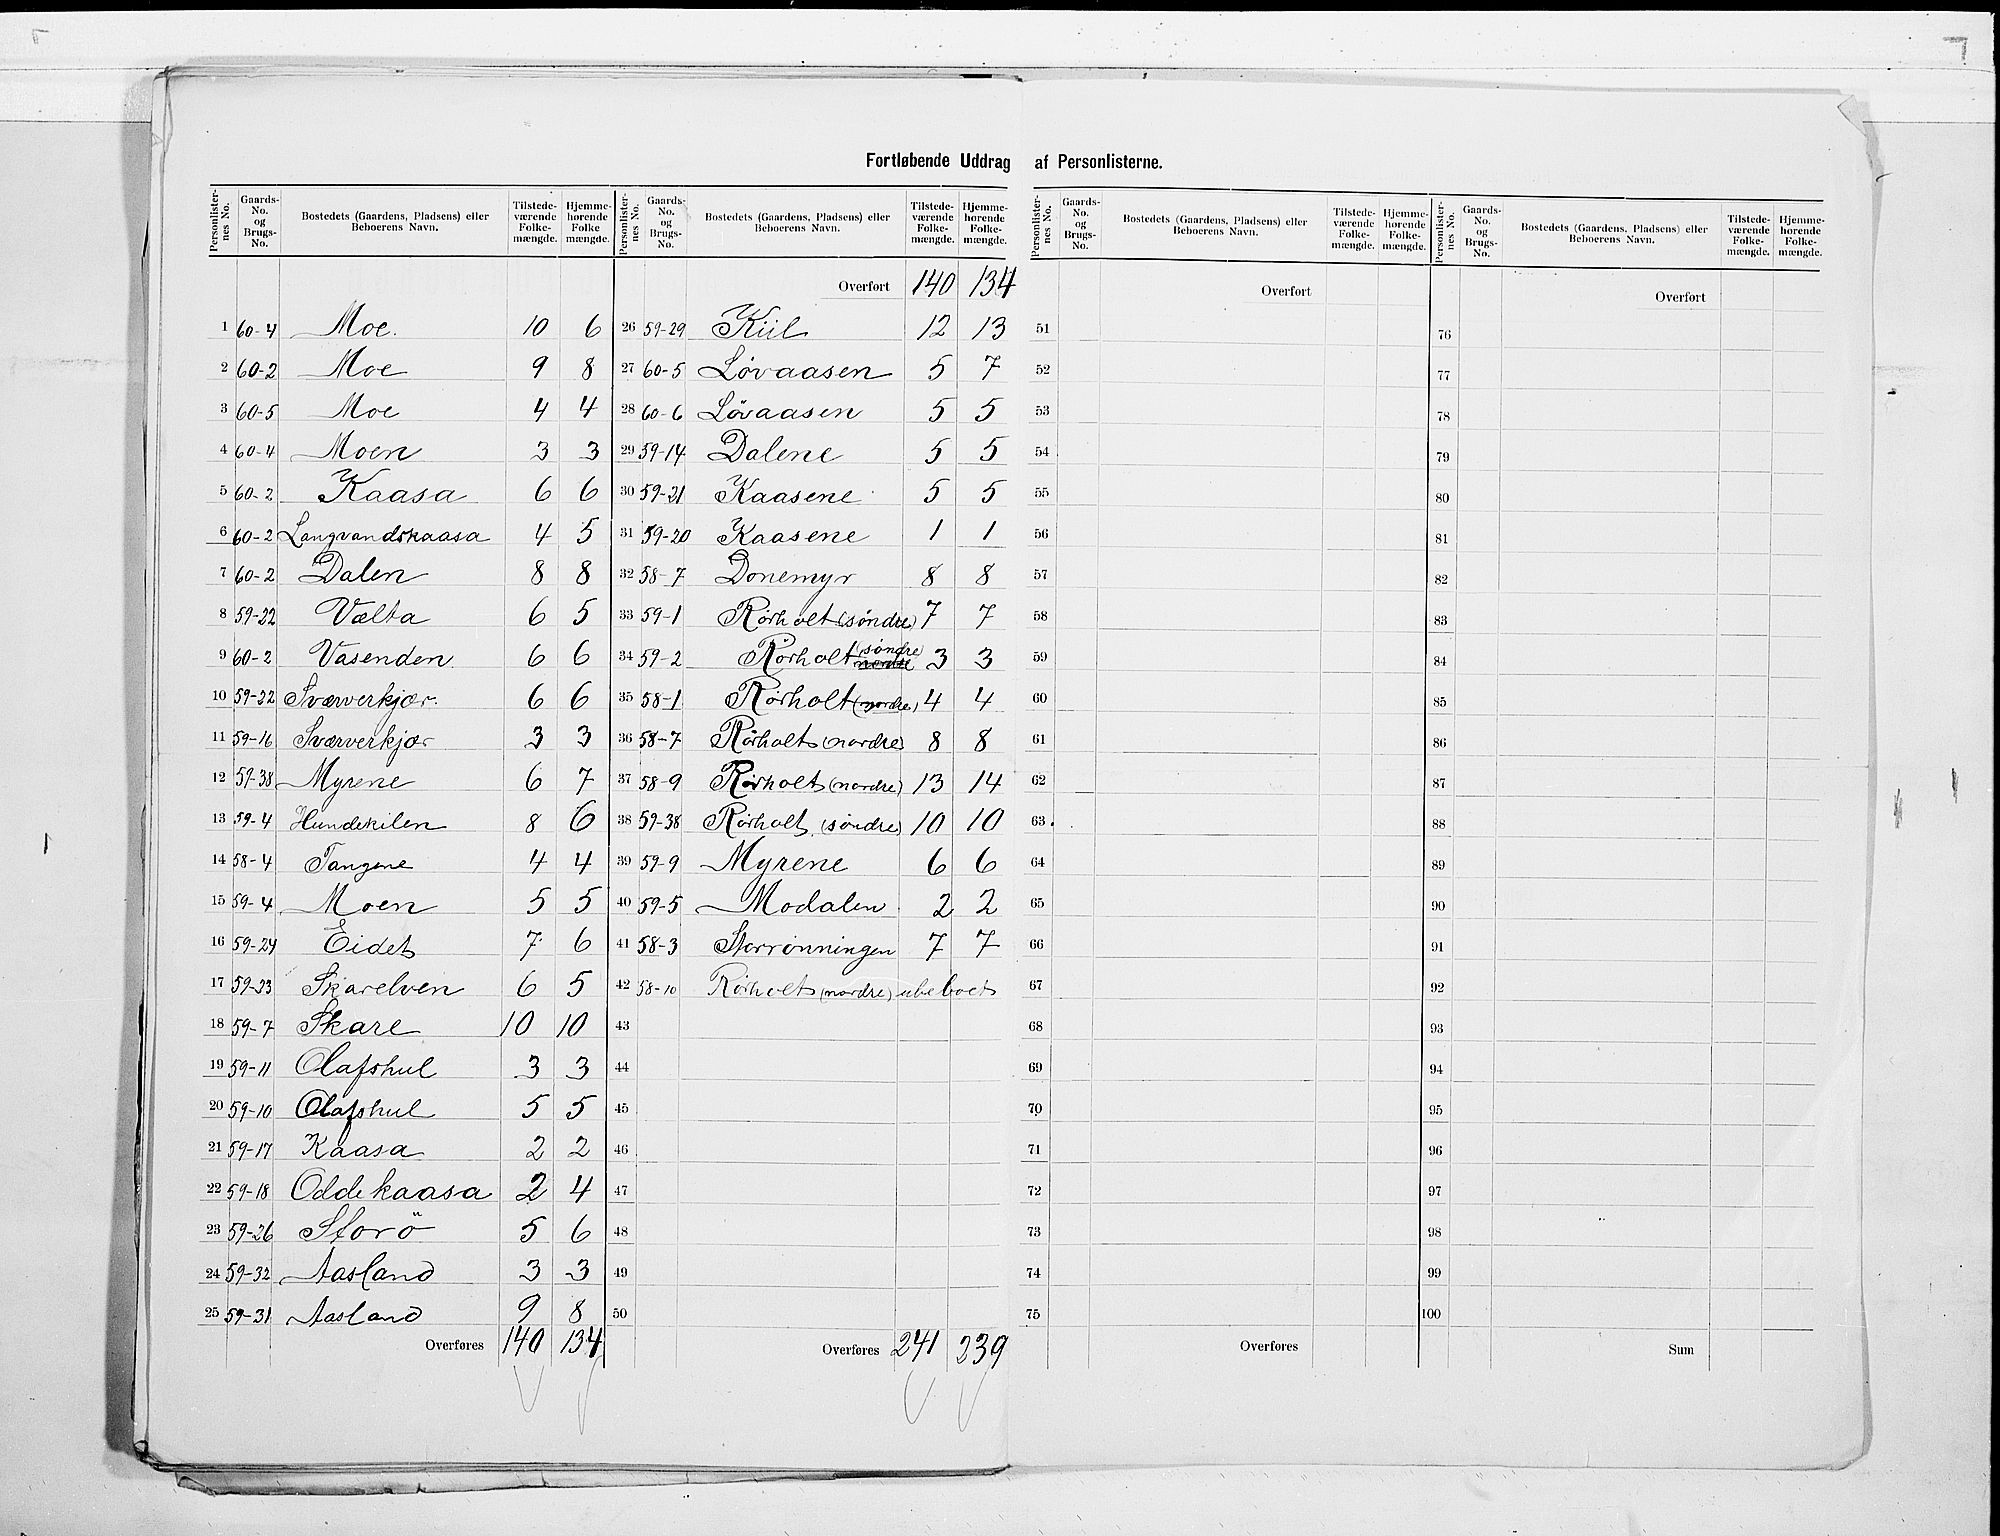 Fortløbende Uddrag af Personlisternes.
Personlister-nes No. | Gaards-No. og Brugs-No. | Bostedets (Gaardens, Pladsens) eller Beboerens Navn. | Tilstede-værende Folke-mængde. | Hjemme-hørende Folke mængde.
1 60-4 Moe. 10 6
2 60-2 Moe 9 8
3 60-5 Moe 4 4
4 60-4 Moen 3 3
5 60-2 Kaasa 6 6
6 60-2 Langvandskaasa 4 5
7 60-2 Dalen 8 8
8 59-22 Vælta 6 5
9 60-2 Vasenden 6 6
10 59-22 Sværverkjær. 6 6
11 59-16 Sværverkjær 3 3
12 59-38 Myrene 6 7
13 59-4 Hundekilen 8 6
14 58-4 Tangene 4 4
15 59-4 Moen 5 5
16 59-24 Eidet 7 6
17 59-23 Skarelven 6 5
18 59-7 Skare 10 10
19 59-11 Olafshul 3 3
20 59-10 Olafshul 5 5
21 59-17 Kaasa 2 2
22 59-18 Oddekaasa 2 4
23 59-26 Storö 5 6
24 59-32 Aasland 3 3
25 59-31 Aasland 9 8
Overføres 140 134
Personlister-nes No. | Gaards-No. og Brugs-No. | Bostedets (Gaardens, Pladsens) eller Beboerens Navn. | Tilstede-værende Folke-mængde. | Hjemme-hørende Folke-mængde.
Overført 140 134
26 59-29 Kiil 12 13
27 60-5 Løvaasen 5 7
28 60-6 Løvaasen 5 5
29 59-14 Dalene 5 5
30 59-21 Kaasene 5 5
31 59-20 Kaasene 1 1
32 58-7 Donemyr 8 8
33 59-1 Rørholt (søndre) 7 7
34 59-2 Rørholt (søndre) nordre 3 3
35 58-1 Rørholt (nordre) 4 4
36 58-7 Rørholt (nordre) 8 8
37 58-9 Rørholt (nordre) 13 14
38 59-38 Rørholt (søndre) 10 10
39 59-9 Myrene 6 6
40 59-5 Modalen 2 2
41 58-3 Storrønningen 7 7
42 58-10 Rørholt (nordre) ubeboet
43
44
45
46
47
48
49
50
Overføres 241 239
Personlister-nes No. | Gaards-No. og Brugs-No. | Bostedets (Gaardens, Pladsens) eller Beboerens Navn. | Tilstede-værende Folke-mængde. | Hjemme-hørende Folke-mængde.
Overført
51
52
53
54
55
56
57
58
59
60
61
62
63
64
65
66
67
68
69
70
71
72
73
74
75
Overføres
Personlister-nes No. | Gaards-No. og Brugs-No. | Bostedets (Gaardens, Pladsens) eller Beboerens Navn. | Tilstede-værende Folke-mængde. | Hjemme-hørende Folke-mængde.
Overført
76
77
78
79
80
81
82
83
84
85
86
87
88
89
90
91
92
93
94
95
96
97
98
99
100
Sum